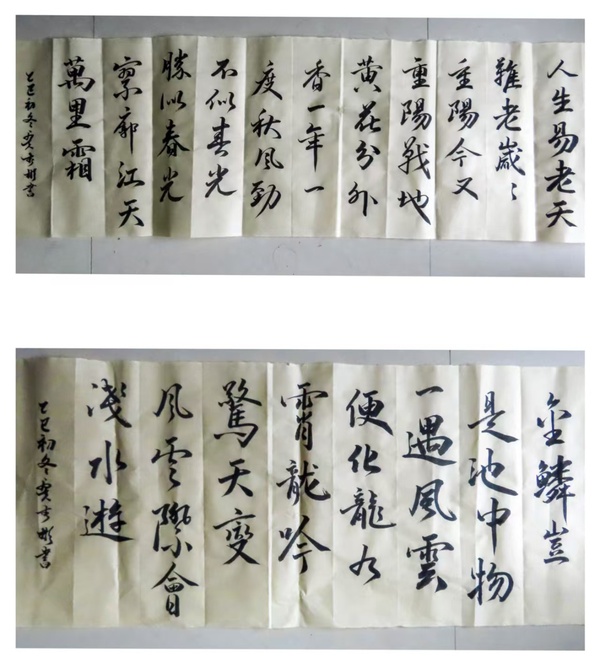 人生易老天
難老歲〻
重陽今又
重陽戰地
黄花分外
香一年一
度秋風勁
不似春光
勝似春光
寥廓江天
萬里霜
乙巳初冬書
金鱗豈
是池中物
一遇風雲
便化龍九
霄龍吟
驚天變
風雲際會
淺水遊
乙巳初冬書